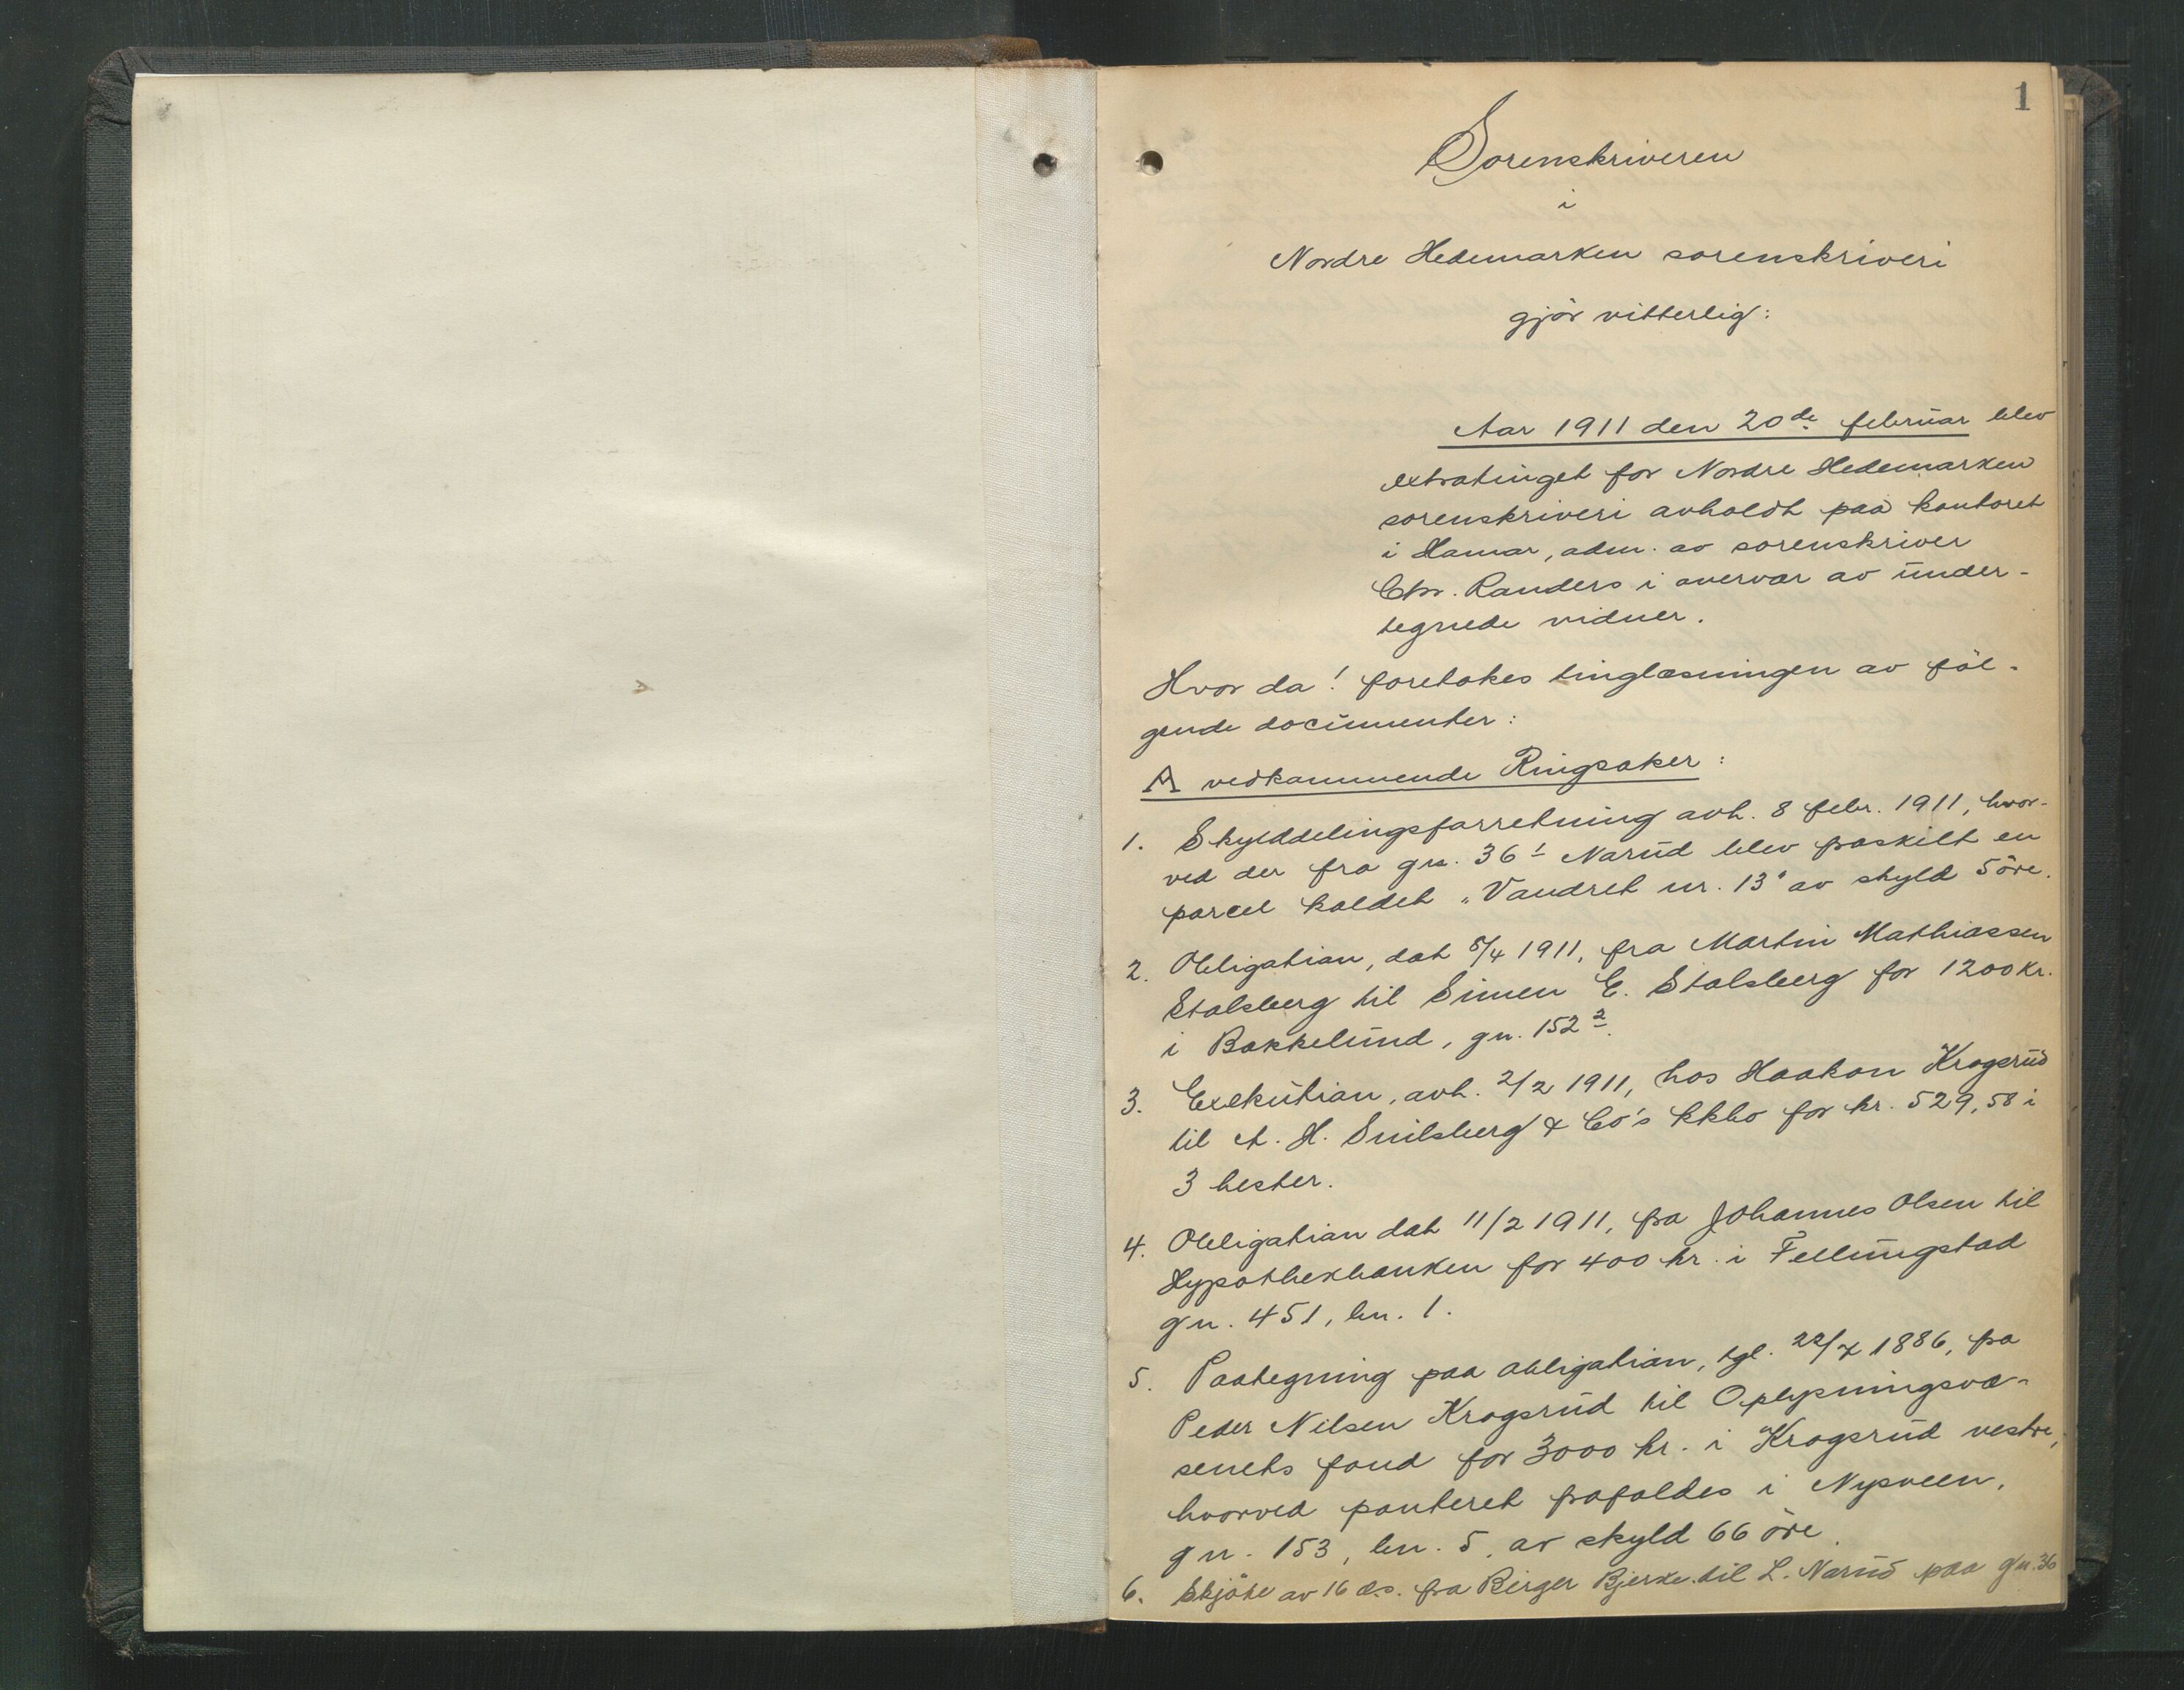 1
Sorenskriveren
i
Nordre Hedemarken sorenskriveri
gjör vitterlig:
Aar 1911 den 20de februar blev
extratinget for Nordre Hedemarken
sorenskriveri avholdt paa kontoret
i Hamar, adm. av sorenskriver
Chr. Randers i overvær av under-
tegnede vidner.
Hvor da! foretokes tinglæsningen av föl-
gende documenter:
A vedkommende Ringsaker:
1. Skylddelingsforretning avh. 8 febr. 1911, hvor-
ved der fra gn. 36¹ Narud blev fraskilt en
parcel kaldet „Vandret nr. 13" av skyld 5 öre.
2. Obligation, dat 8/4 1911, fra Martin Mathiassen
Stalsberg til Simen E. Stalsberg for 1200 kr.
i Bakkelund, gn. 152².
3. Exekution, avh. 2/2 1911, hos Haakon Krogsrud
til A. H. Smilsberg & Co's kkbo for kr. 529,58 i
3 hester.
4. Obligation dat 11/2 1911, fra Johannes Olsen til
Hypothekbanken for 400 kr. i Fellungstad
gn. 451, bn. 1.
5. Paategning paa obligation, tgl. 22/7 1886, fra
Peder Nilsen Krogsrud til Oplysningsvæ-
senets fond for 3000 kr. i Krogsrud vestre,
hvorved panteret frafaldes i Nysveen,
gn. 153, bn. 5, av skyld 66 öre.
6. Skjöte av 16 ds. fra Birger Bjerke til L. Narud paa gn. 36